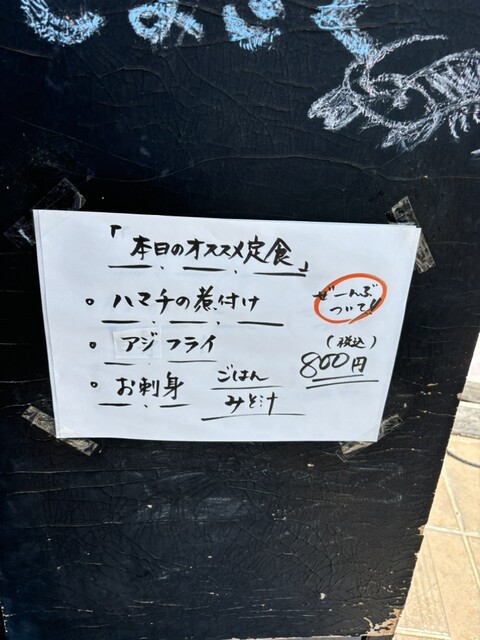 「本日のオススメ定食」
○ ハマチの煮付け
ぜーんぶ
ついて!!
○ アジフライ
(税込)
800円
○ お刺身
ごはん
みそ汁